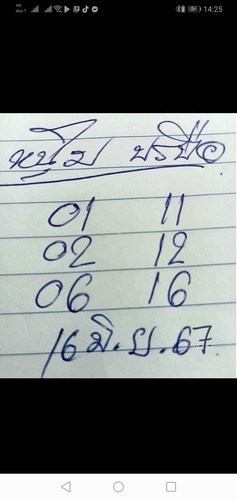 14:25
หนุ่ม
01 11
02 12
06 16
16 มิ.ย.67